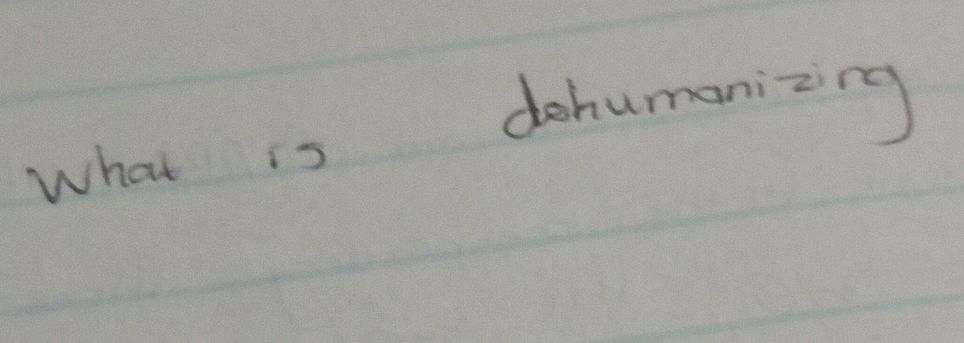 What is dehumanizing